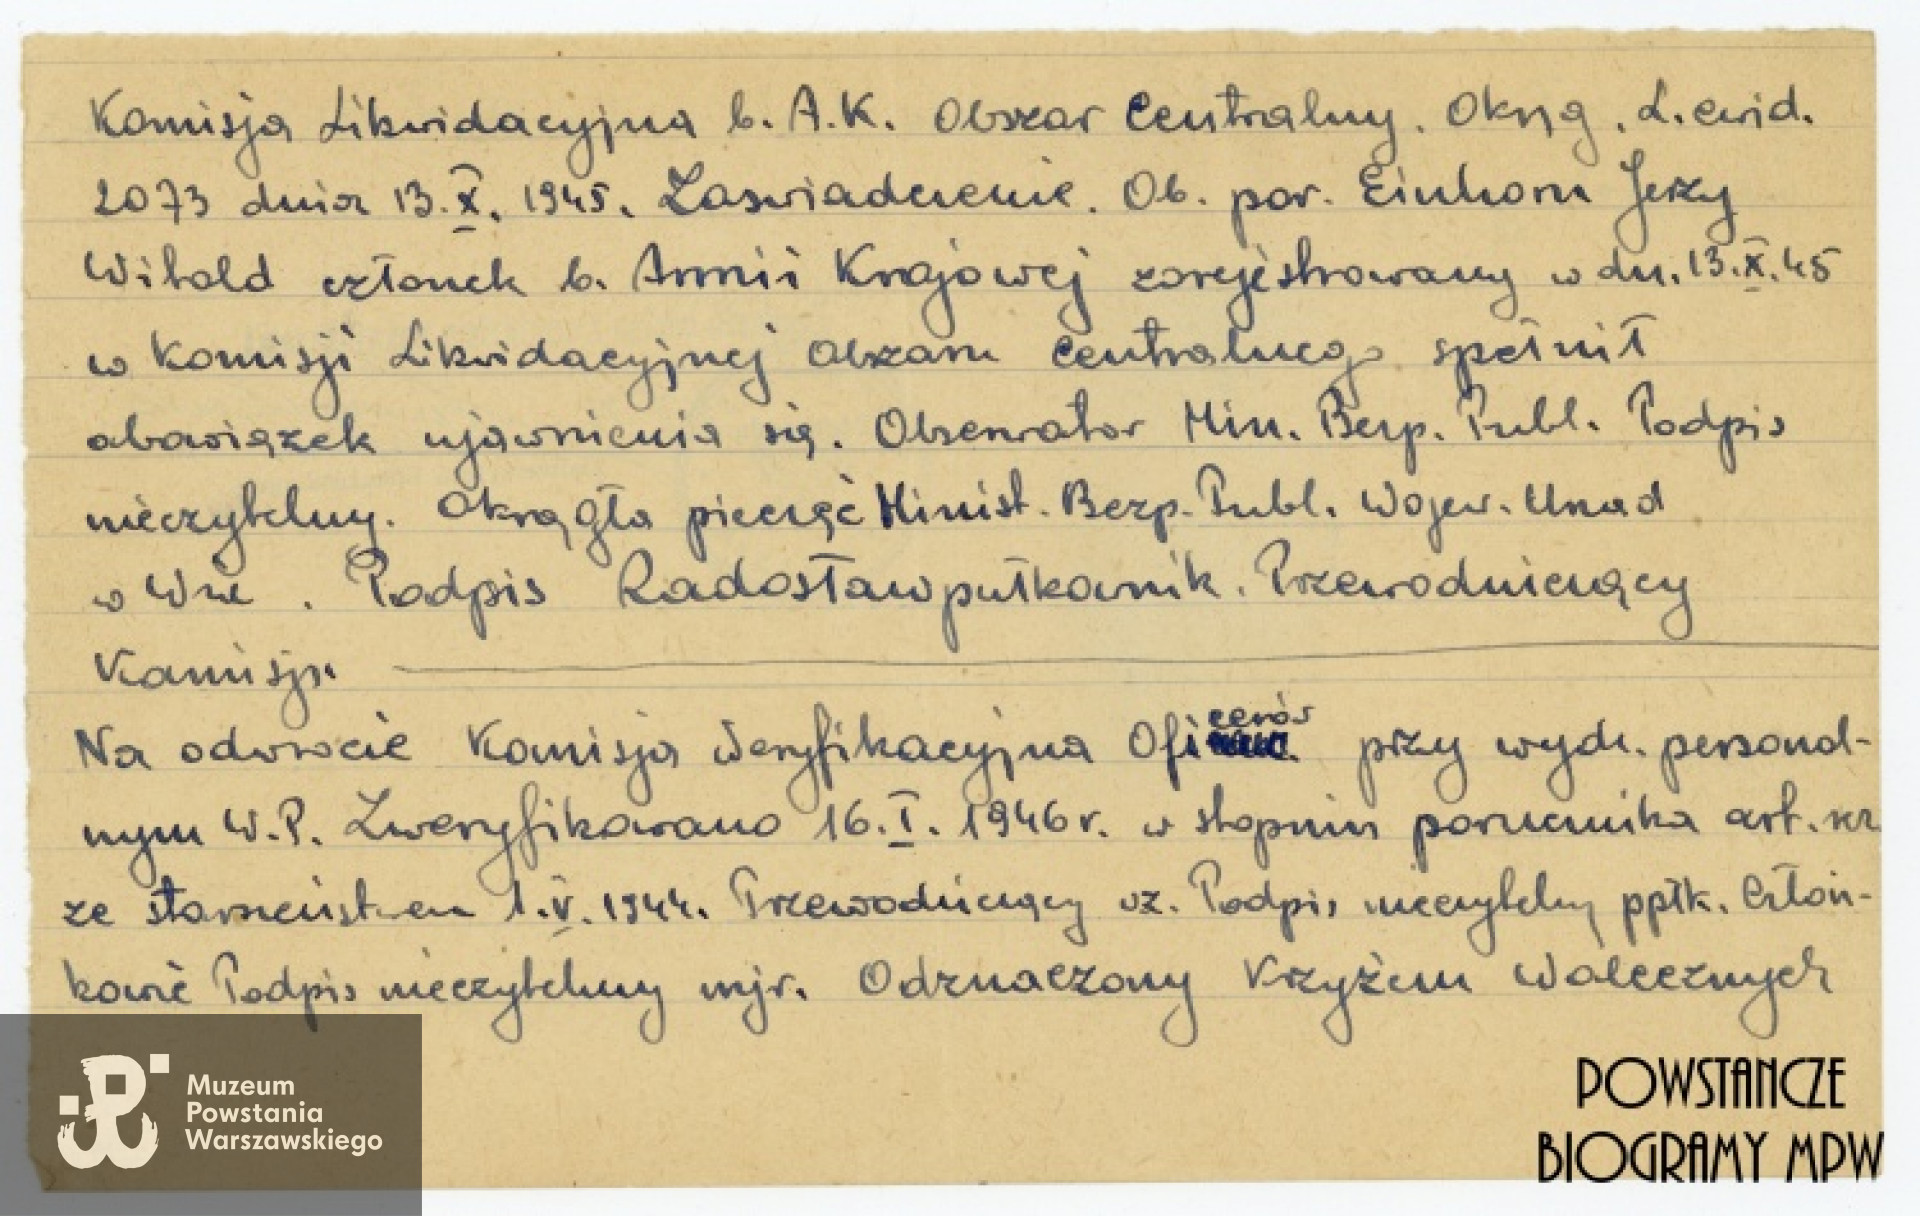 Komisja Likwidacyjna b. A.K. Obszar Centralny. Okrąg. L.ewid.
2073 dnia 13.X. 1945. Zaświadczenie. Ob. por. Einhorn Jerzy
Witold członek b. Armii Krajowej zarejestrowany w dn. 13.X.45
w Komisji Likwidacyjnej Obszaru Centralnego spełnił
obowiązek ujawnienia się. Obserwator Min. Bezp. Publ. Podpis
nieczytelny. Okrągła pieczęć Minist. Bezp. Publ. Wojew. Urząd
w Wwie. Podpis Radosław pułkownik. Przewodniczący
Komisji.
Na odwrocie Komisja Weryfikacyjna Oficerów przy wydz. personal-
nym W.P. Zweryfikowano 16.I. 1946 r. w stopniu porucznika art.
ze starszeństwem 1.V. 1944. Przewodniczący wz. Podpis nieczytelny ppłk. Człon-
kowie Podpis nieczytelny mjr. Odznaczony Krzyżem Walecznych
Muzeum
Powstania
Warszawskiego
POWSTAŃCZE
BIOGRAMY MPW